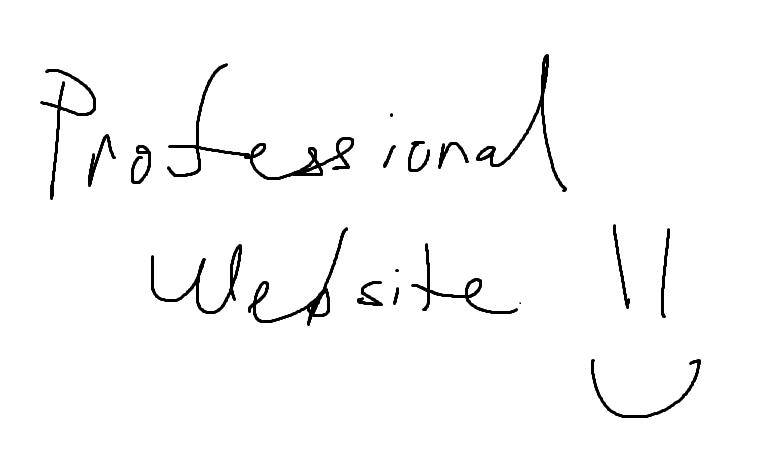 Professional
Website !!